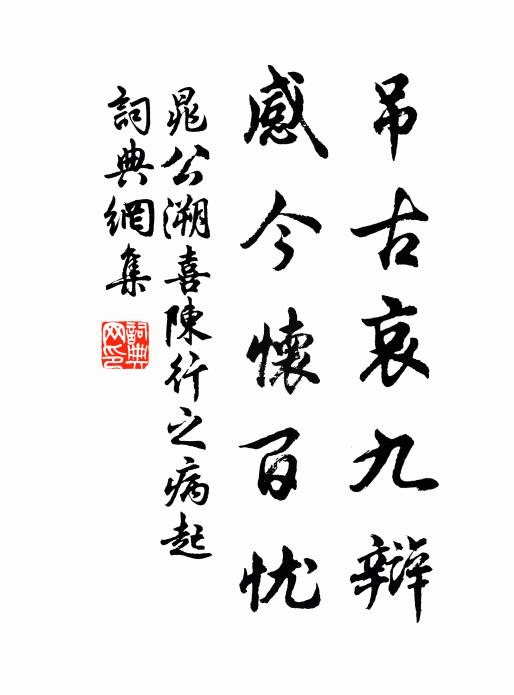 吊古哀九辩
感今懷百忧
晁公溯喜陳行之病起
詞典網集
詞典網印